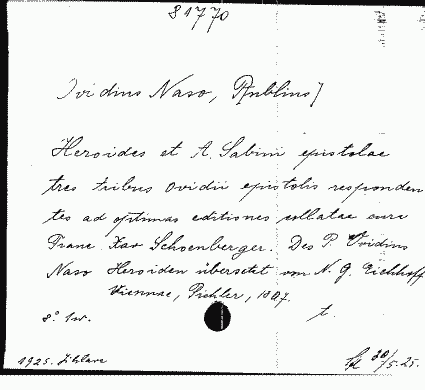 81770
Ovidius Naso, Publius]
Heroides et A. Sabini epistolae
tres tribus Ovidii epistolis responden
tes ad optimas editiones collatae cura
Franc. Xav Schoenberger. Des P. Ovidius
Naso Heroiden übersetzt von N. G. Eichhoff
Viennae, Pichler, 1807.
8° 1w. t.
1925.